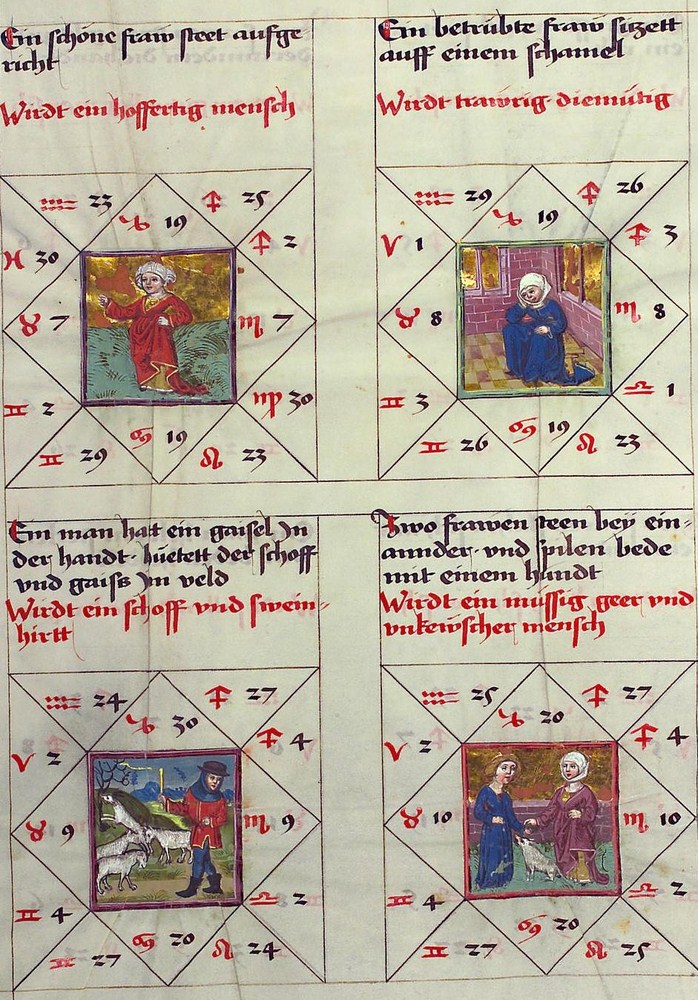 Ein schöne fraw steet aufge
richt
Wirdt ein hoffertig mensch
♒ 23
♑ 19
♐ 25
♓ 30
♐ 2
♉ 7
♏ 7
♊ 2
♍ 30
♊ 29
♋ 19
♌ 23
Ein betrübte fraw sitzett
auff einem schamel
Wirdt trawrig diemütig
♒ 29
♑ 19
♐ 26
♈ 1
♐ 3
♉ 8
♏ 8
♊ 3
♎ 1
♊ 26
♋ 19
♌ 23
Ein man hatt ein gaisel Jn
der handt · hüetett der schoff
vnd gaiss Jn veld
Wirdt ein schoff vnd swein-
hirtt
♒ 24
♑ 30
♐ 27
♈ 2
♐ 4
♉ 9
♏ 9
♊ 4
♎ 2
♊ 27
♋ 20
♌ 24
Zwo frawen steen bey ein-
annder · vnd spilen bede
mit einem hundt
Wirdt ein müssig geer vnd
vnkewscher mensch
♒ 25
♑ 20
♐ 27
♈ 2
♐ 4
♉ 10
♏ 10
♊ 4
♎ 2
♊ 27
♋ 20
♌ 25